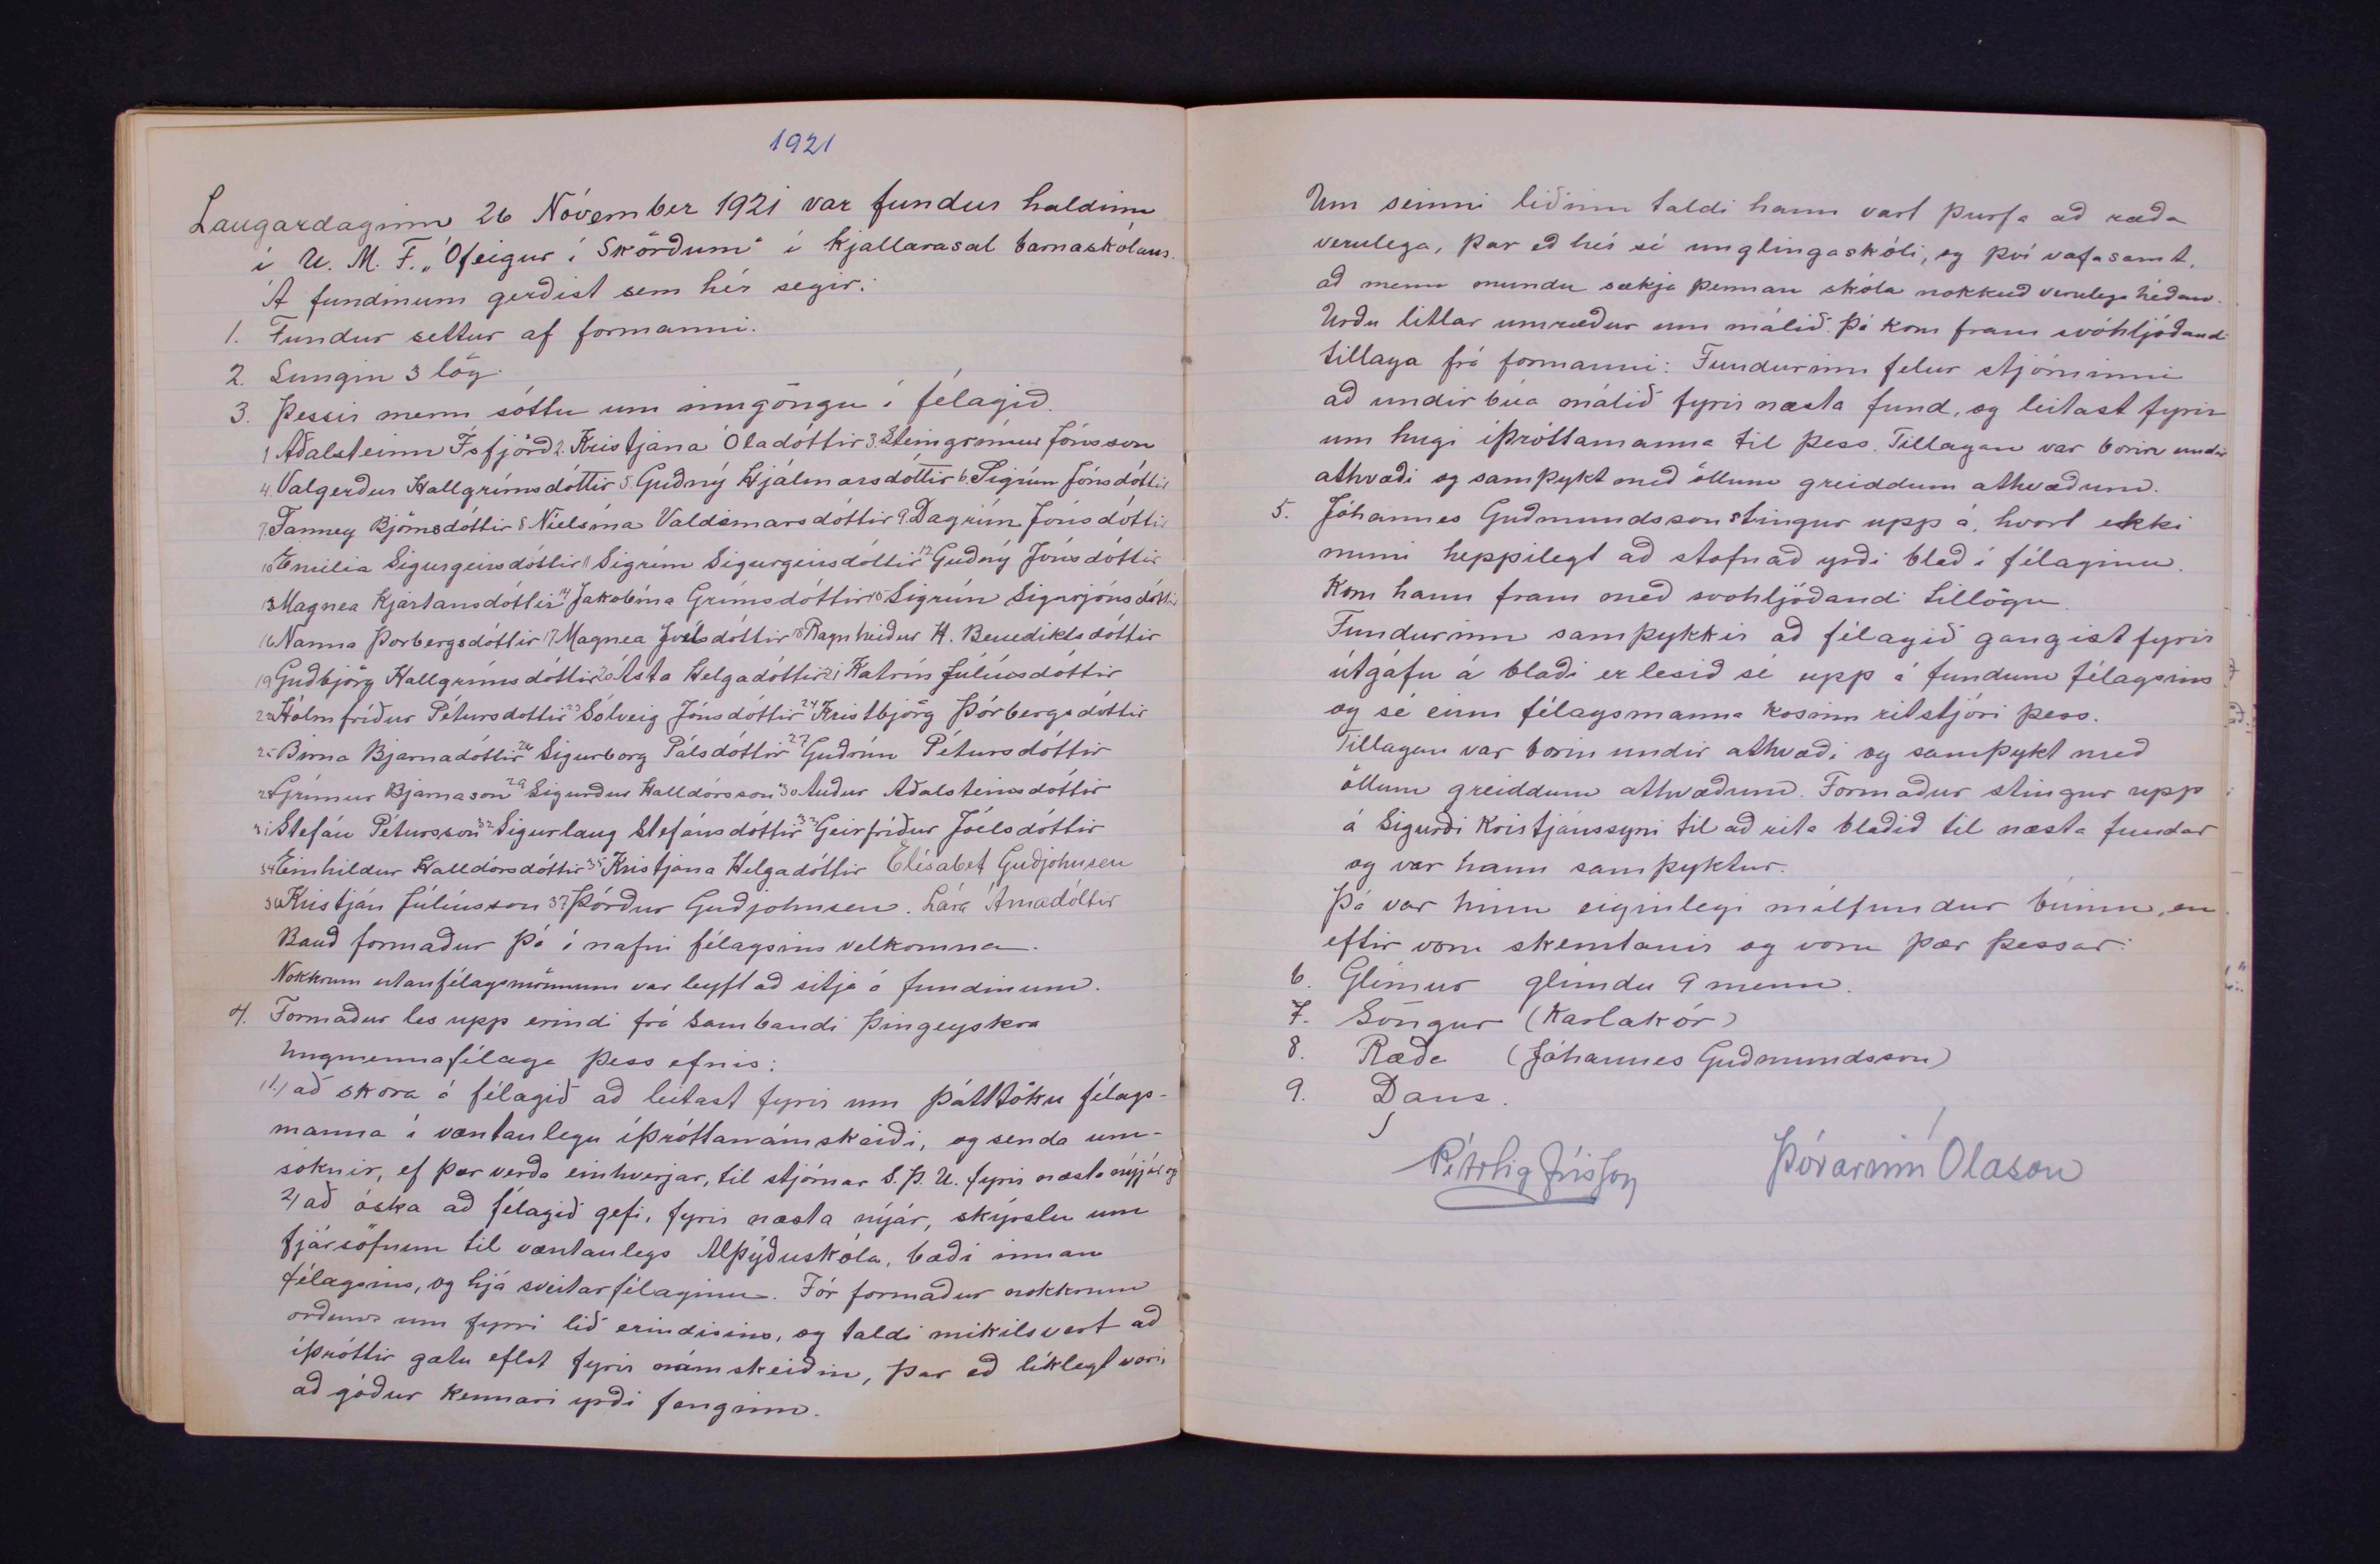 1921
Laugardaginn 26 Nóvember 1921 var fundur haldinn
í U. M. F. „Ófeigur í Skörðum" í kjallarasal barnaskólans.
Á fundinum gerðist sem hér segir:
1. Fundur settur af formanni.
2. Sungin 3 lög.
3. Þessir menn sóttu um inngöngu í félagið.
1 Aðalsteinn Ísfjörð 2. Kristjana Óladóttir 3. Steingrímur Jónsson
4. Valgerður Hallgrímsdóttir 5. Guðný Hjálmarsdóttir 6. Sigrún Jónsdóttir
7. Fanney Björnsdóttir 8 Níelsína Valdemarsdóttir 9. Dagrún Jónsdóttir
10 Emilia Sigurgeirsdóttir 11 Sigrún Sigurgeirsdóttir 12 Guðný Jónsdóttir
13 Magnea Kjartansdóttir 14 Jakobína Grímsdóttir 15 Sigrún Sigurjónsdóttir
16 Nanna Þorbergsdóttir 17 Magnea Jóelsdóttir 18 Ragnheiður H. Benediktsdóttir
19 Guðbjörg Hallgrímsdóttir 20 Ásta Helgadóttir 21 Katrín Júlíusdóttir
22 Hólmfríður Pétursdóttir 23 Sólveig Jónsdóttir 24 Kristbjörg Þórbergsdóttir
25 Birna Bjarnadóttir 26 Sigurborg Pálsdóttir 27 Guðrún Pétursdóttir
28 Grímur Bjarnason 29 Sigurður Halldórsson 30 Auður Aðalsteinsdóttir
31 Stefán Pétursson 32 Sigurlaug Stefánsdóttir 33 Geirfríður Jóelsdóttir
34 Einhildur Halldórsdóttir 35 Kristjana Helgadóttir Elísabet Guðjohnsen
36 Kristján Júlíusson 37 Þórður Guðjohnsen. Lára Árnadóttir
Bauð formaður þá í nafni félagsins velkomna.
Nokkrum utanfélagsmönnum var leyft að sitja á fundinum.
4. Formaður les upp erindi frá Sambandi Þingeyskra
Ungmennafélaga þess efnis:
(1.) að skora á félagið að leitast fyrir um þátttöku félags-
manna í væntanlegu íþróttanámskeiði, og senda um-
sóknir, ef þær verða einhverjar, til stjórnar S. Þ. U. fyrir næsta nýjár og
2) að óska að félagið gefi, fyrir næsta nýár, skýrslu um
fjársöfnun til væntanlegs Alþýðuskóla, bæði innan
félagsins, og hjá sveitarfélaginu. Fór formaður nokkrum
orðum um fyrri lið erindisins, og taldi mikilsvert að
íþróttir gætu eflst fyrir námskeiðin, þar eð líklegt væri,
að góður kennari yrði fenginn.
Um seinni liðinn taldi hann vart þurfa að ræða
verulega, þar eð hér sé unglingaskóli, og því vafasamt,
að menn mundu sækja þennan skóla nokkuð verulega héðan.
Urðu litlar umræður um málið. Þá kom fram svóhljóðandi
tillaga frá formanni: Fundurinn felur stjórninni
að undirbúa málið fyrir næsta fund, og leitast fyrir
um hugi íþróttamanna til þess. Tillagan var borin undir
athvæði og samþykt með öllum greiddum athvæðum.
5. Jóhannes Guðmundsson stingur upp á, hvort ekki
muni heppilegt að stofnað yrði blað í félaginu.
Kom hann fram með svohljóðandi tillögu.
Fundurinn samþykkir að félagið gangist fyrir
útgáfu á blaði er lesið sé upp á fundum félagsins
og sé einn félagsmanna kosinn ritstjóri þess.
Tillagan var borin undir athvæði og samþykt með
öllum greiddum athvæðum. Formaður stingur upp
á Sigurði Kristjánssyni til að rita blaðið til næsta fundar
og var hann samþyktur.
Þá var hinn eiginlegi málfundur búinn, en
eftir voru skemtanir og voru þær þessar:
6. Glímur glímdu 9 menn.
7. Söngur (Karlakór)
8. Ræða (Jóhannes Guðmundsson)
9. Dans.
Þórarinn Ólason